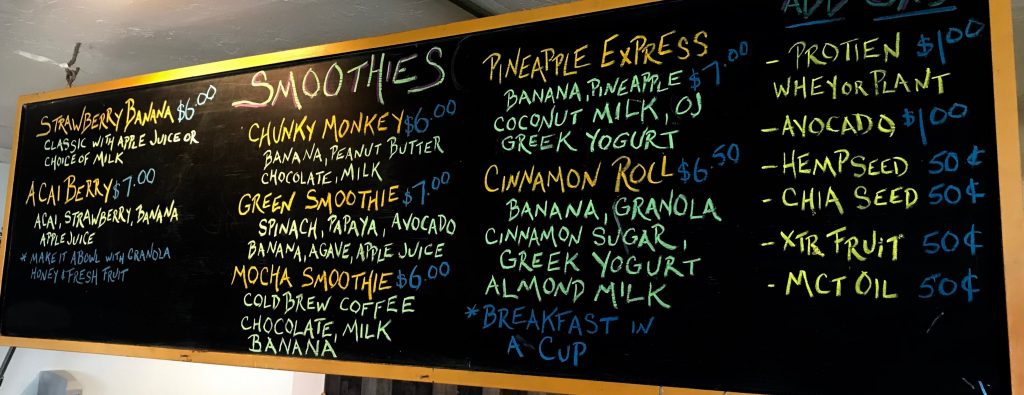 SMOOTHIES
STRAWBERRY BANANA $6.00
CLASSIC WITH APPLE JUICE OR
CHOICE OF MILK
ACAI BERRY $7.00
ACAI, STRAWBERRY, BANANA
APPLE JUICE
* MAKE IT A BOWL WITH GRANOLA
HONEY & FRESH FRUIT
CHUNKY MONKEY $6.00
BANANA, PEANUT BUTTER
CHOCOLATE, MILK
GREEN SMOOTHIE $7.00
SPINACH, PAPAYA, AVOCADO
BANANA, AGAVE, APPLE JUICE
MOCHA SMOOTHIE $6.00
COLD BREW COFFEE
CHOCOLATE, MILK
BANANA
PINEAPPLE EXPRESS
BANANA, PINEAPPLE $7.00
COCONUT MILK, OJ
GREEK YOGURT
CINNAMON ROLL $6.50
BANANA, GRANOLA
CINNAMON SUGAR,
GREEK YOGURT
ALMOND MILK
* BREAKFAST IN
A CUP
ADD ONS
- PROTIEN $1.00
WHEY OR PLANT
- AVOCADO $1.00
- HEMPSEED 50¢
- CHIA SEED 50¢
- XTR FRUIT 50¢
- MCT OIL 50¢